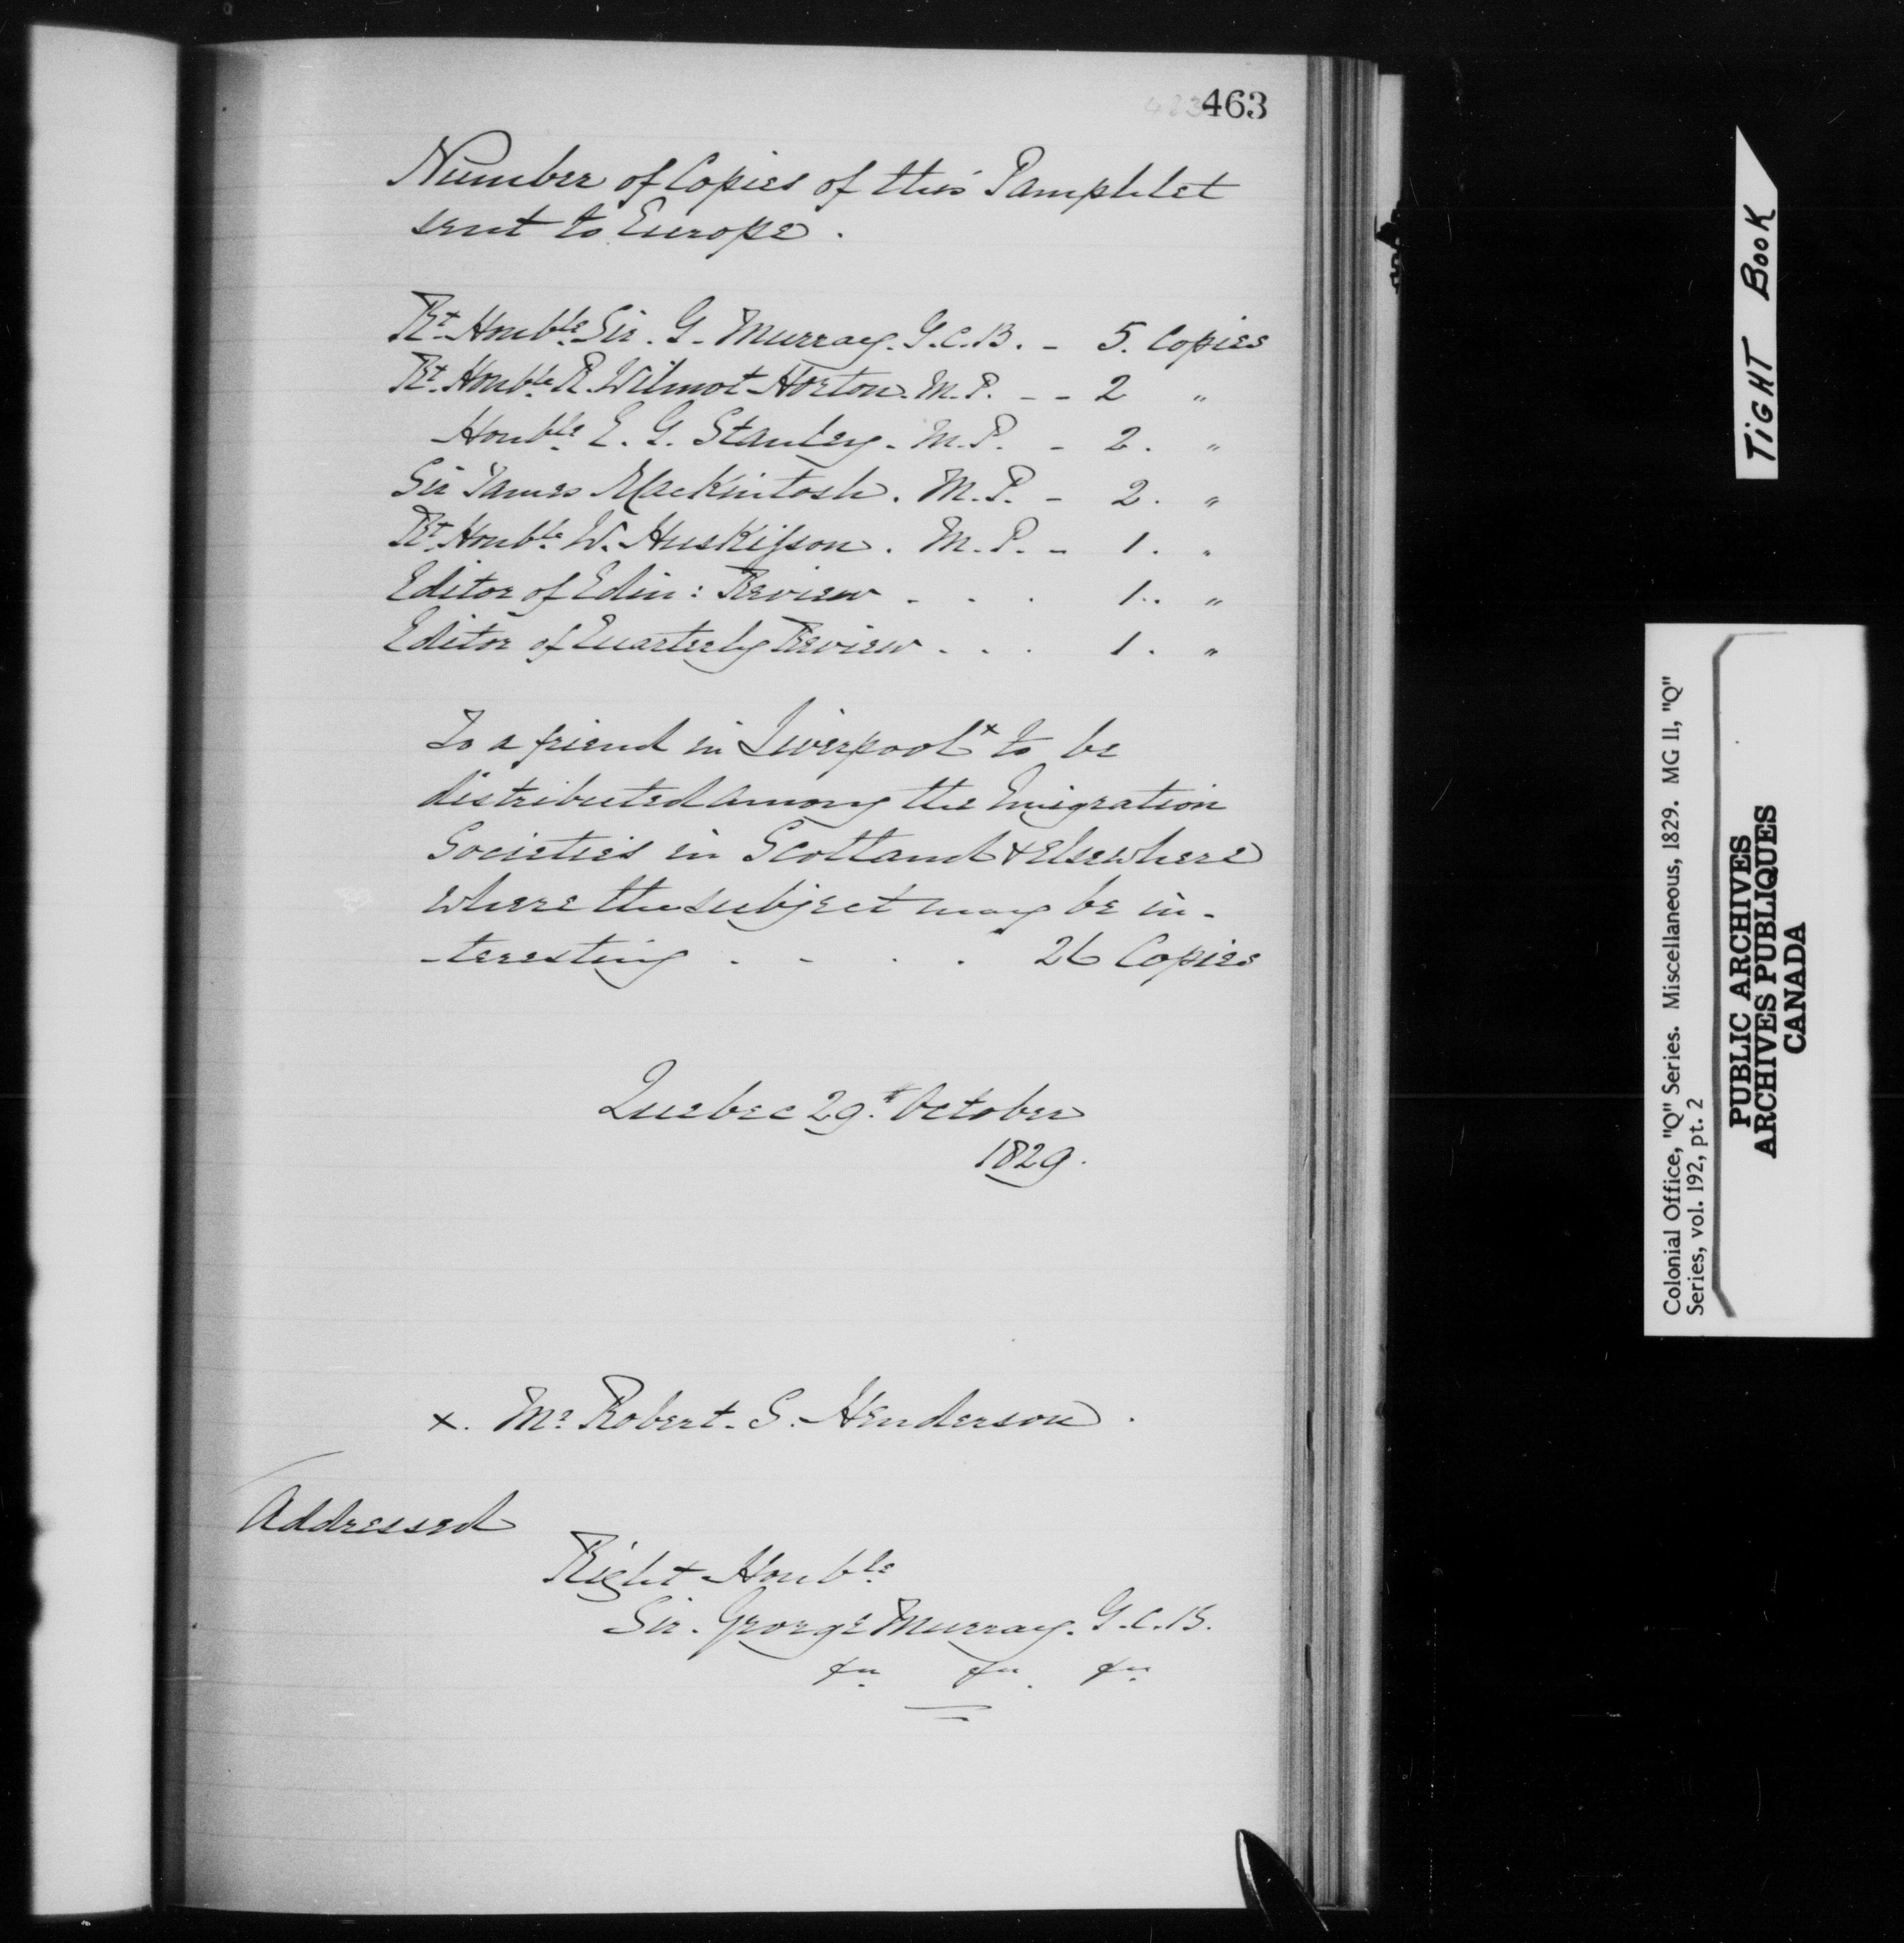 463
Number of Copies of this Pamphlet
sent to Europe.
Rt. Honble. Sir. G. Murray. G.C.B. - 5. Copies
Rt. Honble. R. Wilmot Horton. M.P. - - 2 "
Honble. E. G. Stanley. M.P. - 2. "
Sir James MacKintosh. M.P. - 2. "
Rt. Honble. W. Huskisson. M.P. - 1. "
Editor of Edin: Review - . . 1. "
Editor of Quarterly Review . . . 1. "
To a friend in Liverpool x to be
distributed among the Emigration
Societies in Scotland & Elsewhere
where the subject may be in-
-teresting . - . . 26 Copies
Quebec 29th October
1829.
x. Mr Robert. S. Henderson.
Addressed
Right Honble.
Sir. George Murray. G.C.B.
&c &c. &c
TIGHT BOOK
Colonial Office, "Q" Series. Miscellaneous, 1829. MG 11, "Q"
Series, vol. 192, pt. 2
PUBLIC ARCHIVES
ARCHIVES PUBLIQUES
CANADA